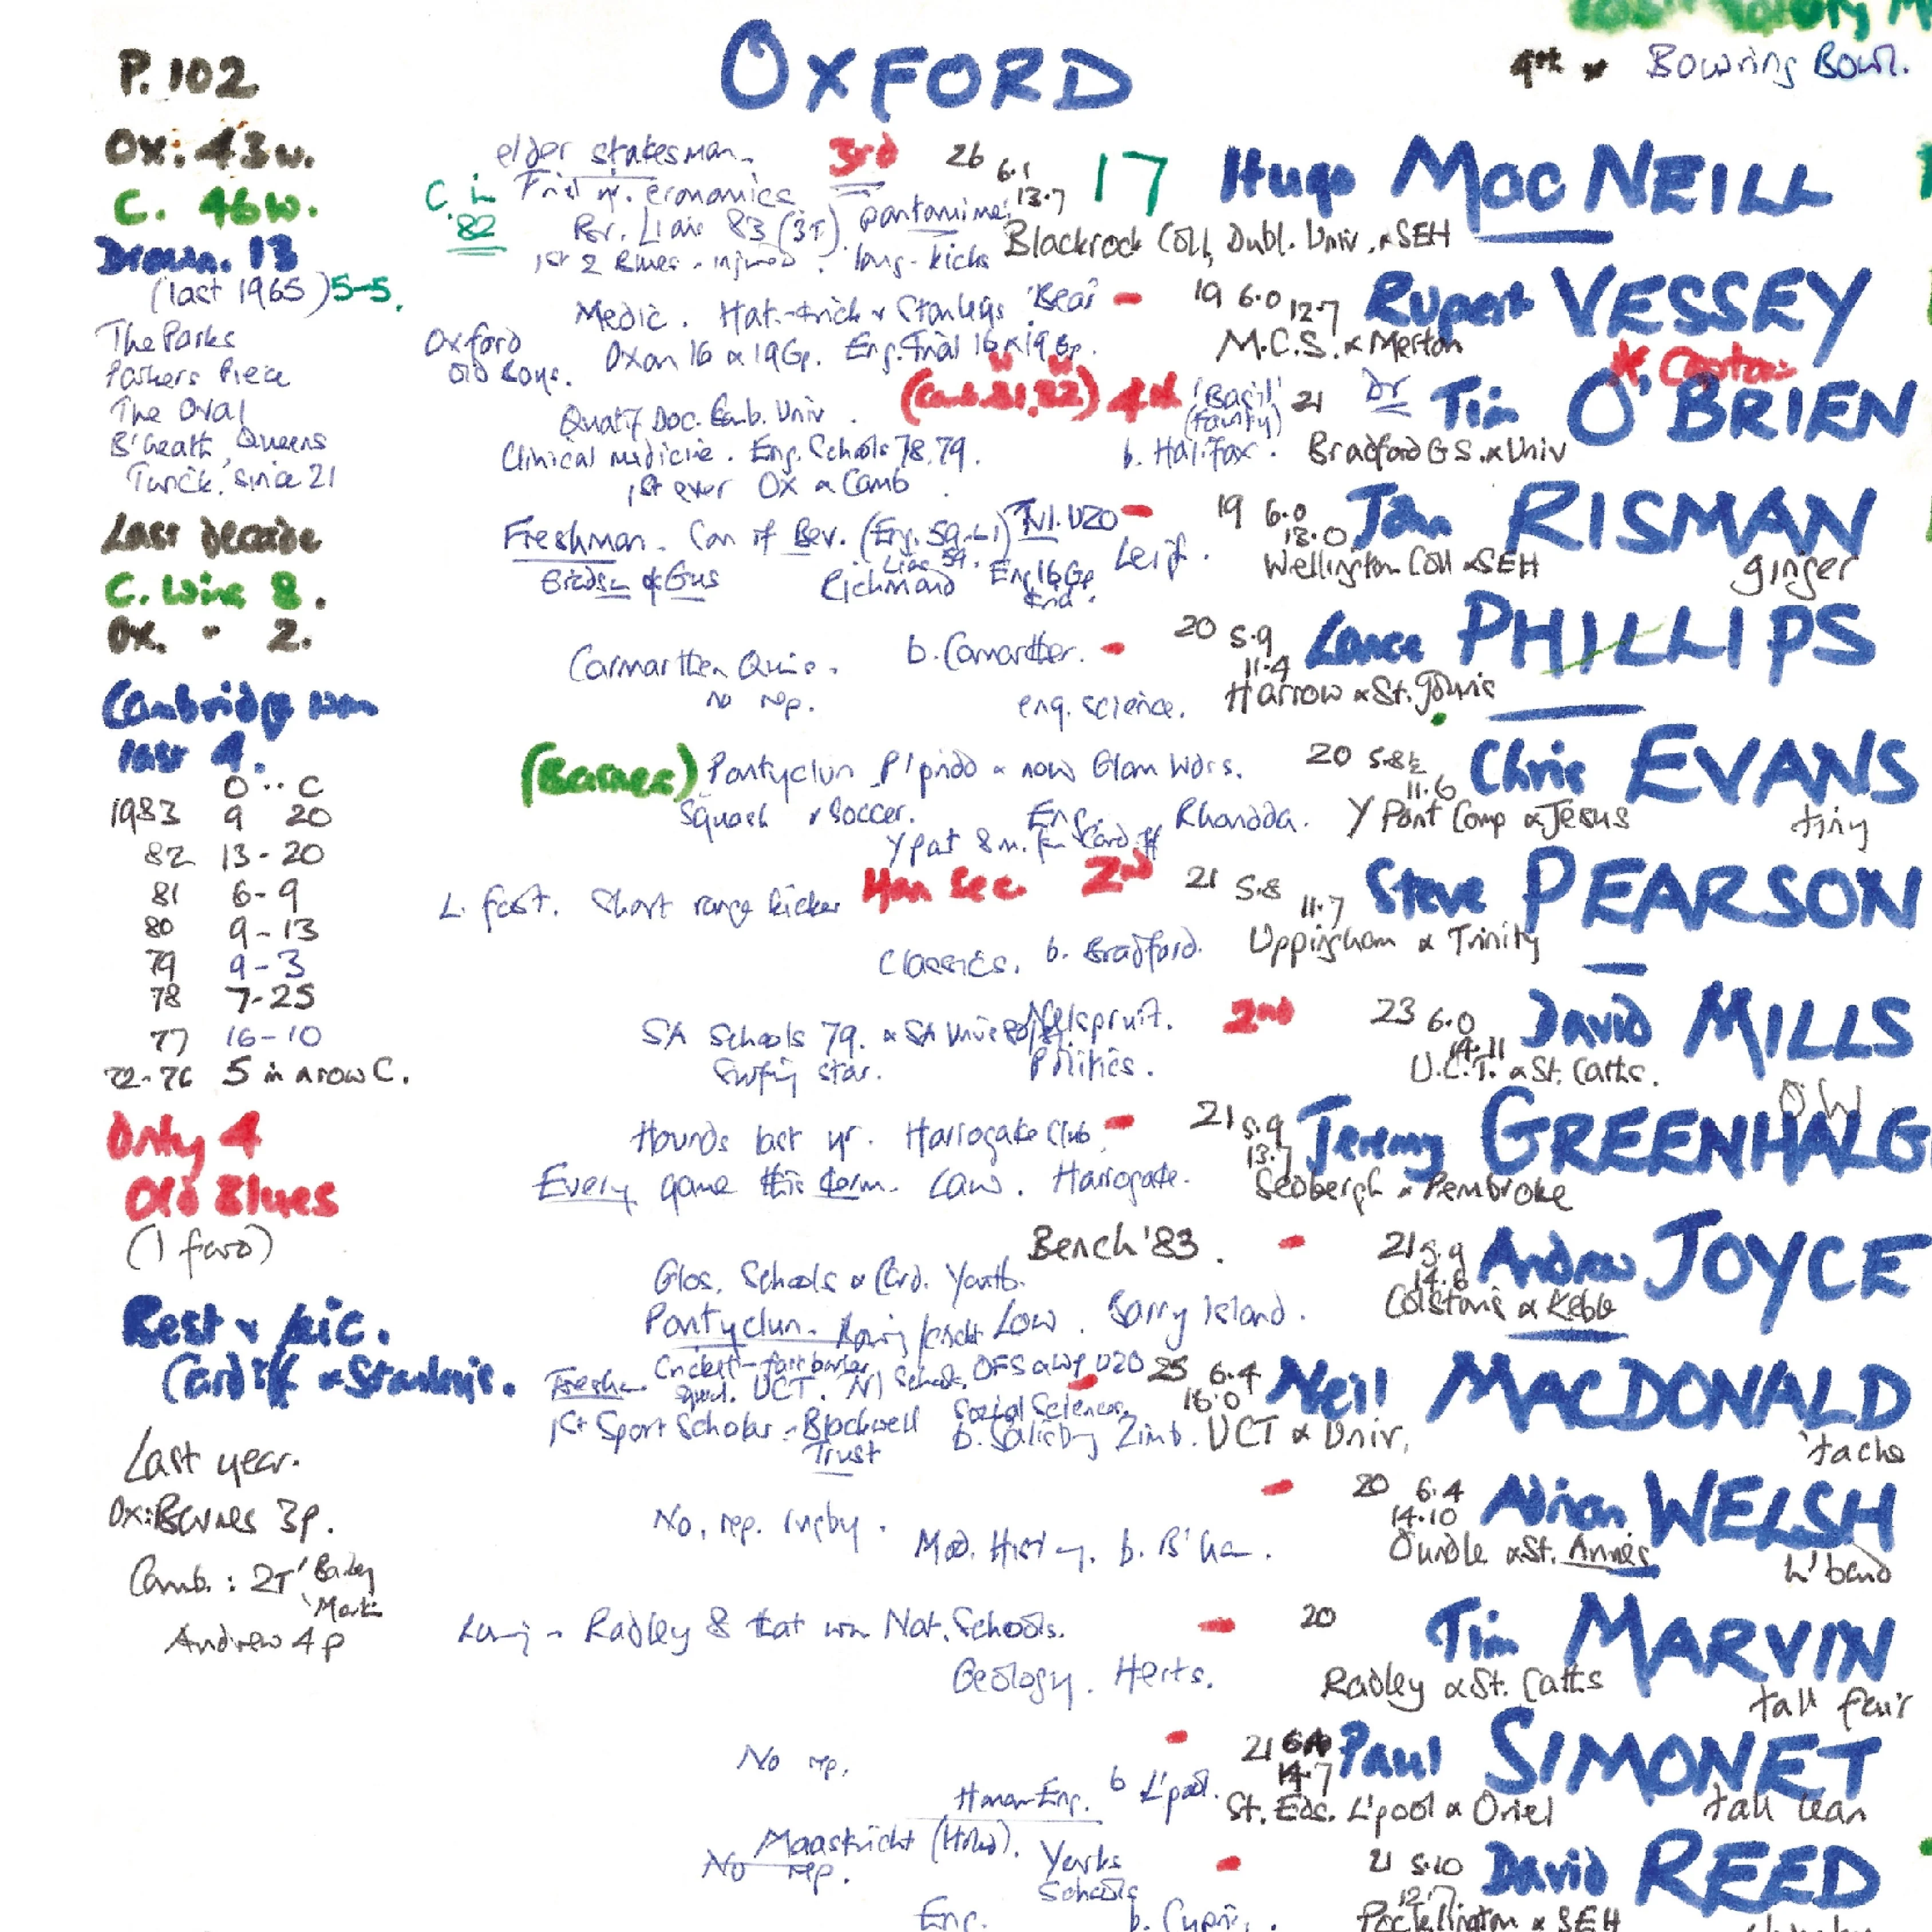 OXFORD
4th Bowring Bowl.
P. 102
Ox: 43w.
C. 46w.
Drawn. 13
(last 1965) 5-5.
The Parks
Parkers Piece
The Oval
B'heath, Queens
Twick. since 21
Last decade
C. wins 8.
Ox. " 2.
Cambridge won
last 4.
O .. C
1983 9 20
82 13-20
81 6-9
80 9-13
79 9-3
78 7-25
77 16-10
72-76 5 in a row C.
Only 4
Old Blues
(1 foro)
Best v
Cardiff & Stanleys.
Last year.
Ox: Barnes 3p.
Camb.: 2T Bailey
Martin
Andrew 4p
elder statesman. 3rd 26 6.1 13.7 17 Hugo MacNEILL
C. in 82
economics pantomime
Br. Lions 83 (3T)
1st 2 Blues - injured. long-kicks
Blackrock Coll, Dubl. Univ. & SEH
Medic. Hat-trick v Stanleys 'Bear' - 19 6.0 12.7 Rupert VESSEY
Oxford Old Boys. Oxon 16 & 19 Gp. Eng. Trial 16 & 19 Gp. M.C.S. & Merton
* Captain
(Camb. 81, 82) 4th 'Basil' (Fawlty) 21 Dr Tim O'BRIEN
Qualif Doc. Camb. Univ.
Clinical medicine. Eng. Schools 78.79. b. Halifax. Bradford GS. & Univ
1st ever Ox & Camb
Freshman. Son of Bev. (Eng. 59-61) U20 - 19 6.0 13.0 John RISMAN
Lions 59. Leif.
Richmond Eng 16 Gp Wellington Coll & SEH ginger
Carmarthen Quins. b. Camarthen. - 20 5.9 11.4 Lance PHILLIPS
no rep. eng. science. Harrow & St. John's
(Barnes) Pontyclun P'pridd & now Glam Wdrs. 20 5.8½ 11.6 Chris EVANS
Squash & Soccer. Eng. Rhondda. Y Pant Comp & Jesus tiny
Y pat 8 m. fr. Cardiff
L. foot. Short range kicker Hon Sec 2nd 21 5.8 11.7 Steve PEARSON
Classics. b. Bradford. Uppingham & Trinity
SA Schools 79. & SA Univs Nelspruit. 2nd 23 6.0 14.11 David MILLS
Surfing star. Politics. U.C.T. & St. Catts.
O W
Hounds last yr. Harrogate Club - 21 5.9 13.7 Jeremy GREENHALG
Every game this term. Law. Harrogate. Sedbergh & Pembroke
Bench '83. - 21 5.9 14.6 Andrew JOYCE
Glos. Schools & Card. Youth. Colstons & Keble
Pontyclun. Law. Barry Island.
Cricket - fast bowler. OFS & WP U20 - 25 6.4 16.0 Neil MACDONALD
squad. UCT. Schools.
1st Sport Scholar - Blackwell Trust Social Sciences. b. Salisbury Zimb. UCT & Univ. 'tache
- 20 6.4 14.10 Adrian WELSH
No. rep. rugby. Mod. History. b. B'ham. Oundle & St. Annes h'band
Rowing - Radley 8 that won Nat. Schools. - 20 Tim MARVIN
Geology. Herts. Radley & St. Catts tall fair
- 21 14.7 Paul SIMONET
No rep. b L'pool. St. Eds. L'pool & Oriel tall lean
Maastricht (Holld). Yorks Schools - 21 5.10 12.7 David REED
No rep.
Eng. b. Pocklington & SEH